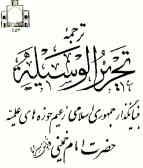 ترجمهٔ
تحریر الوسیله
بنیانگذار جمهوری اسلامی زعیم حوزه های علمیه
حضرت امام خمینی